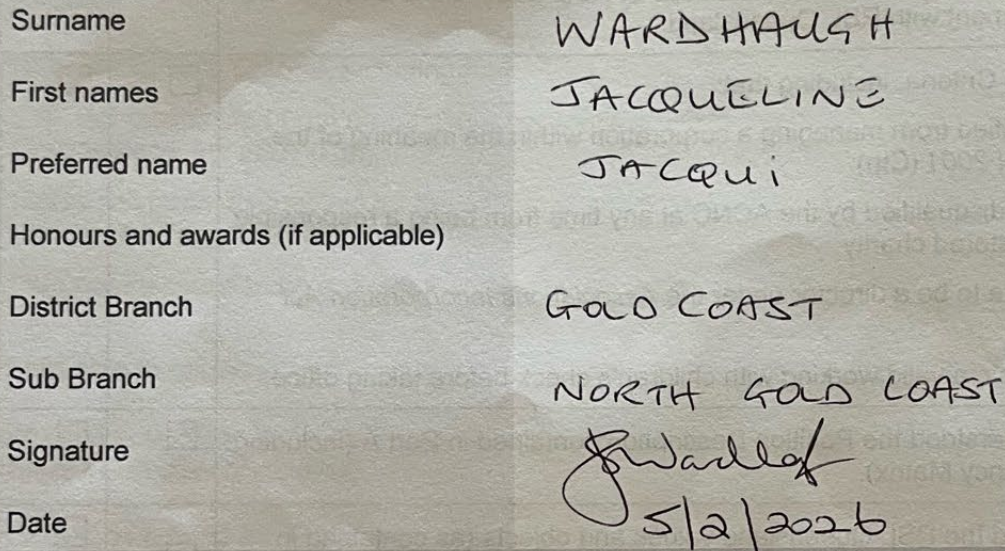 Surname WARDHAUGH
First names JACQUELINE
Preferred name JACQUi
Honours and awards (if applicable)
District Branch GOLD COAST
Sub Branch NORTH GOLD COAST
Signature
Date 5/2/2026